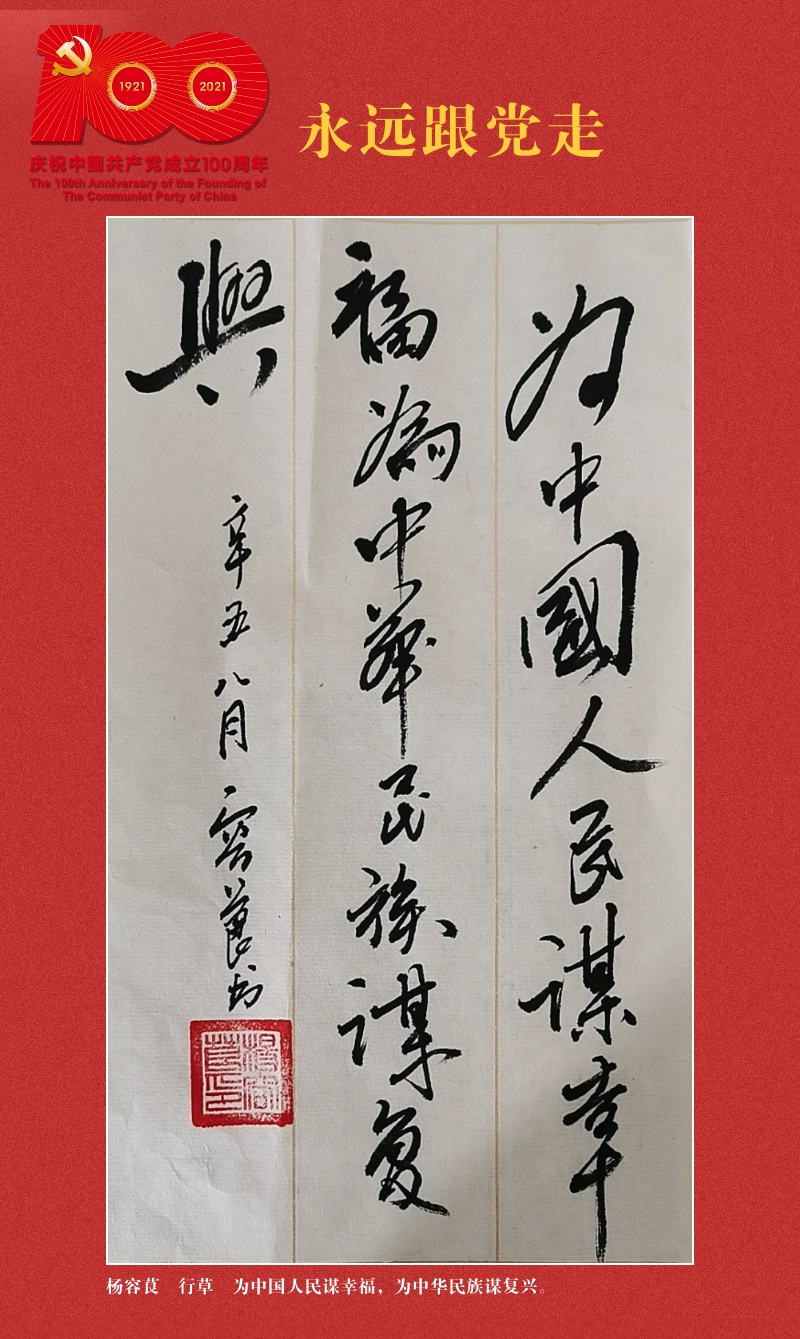 1921 2021
庆祝中国共产党成立100周年
The 100th Anniversary of the Founding of
The Communist Party of China
永远跟党走
为中國人民谋幸
福為中華民族谋复
興
辛丑八月 容茛书
杨容茛 行草 为中国人民谋幸福，为中华民族谋复兴。